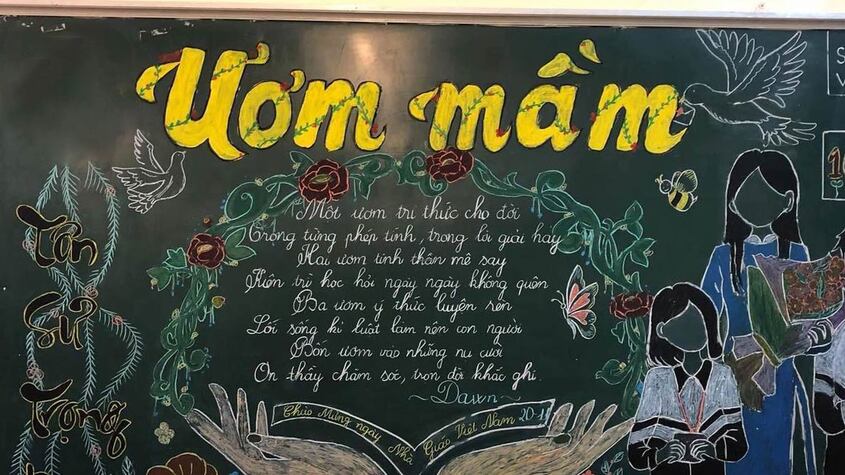 Ươm mầm
Một ươm tri thức cho đời
Trong từng phép tính, trong lời giải hay
Hai ươm tinh thần mê say
Kiên trì học hỏi ngày ngày không quên
Ba ươm ý thức luyện rèn
Lối sống kỉ luật làm nên con người
Bốn ươm vào những nụ cười
Ơn thầy chăm sóc, trọn đời khắc ghi.
~Dawn~
Chào Mừng ngày Nhà Giáo Việt Nam 20-11
Tôn
Sư
Trọng